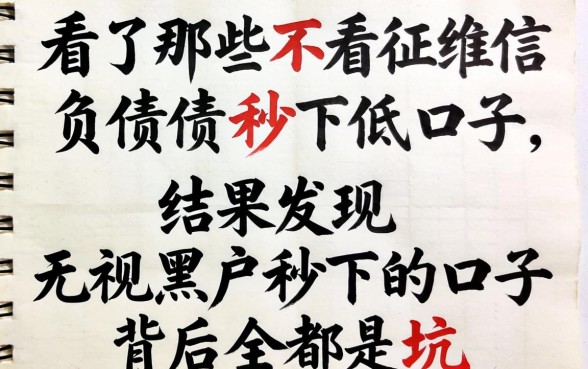 看了那些不看征维信
负债债秒下低口子，
结果发现
无视黑户秒下的口子
背后全都是坑